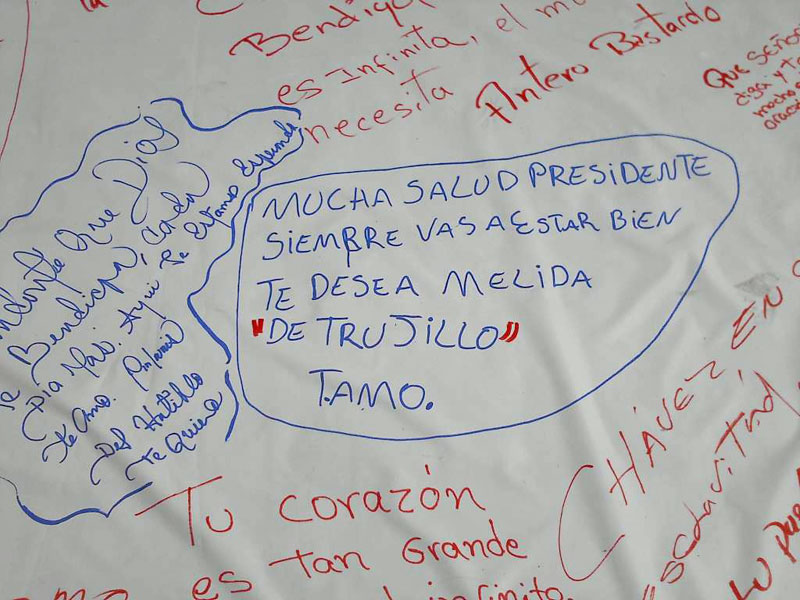 la
Bendiga
es Infinita, el
necesita
Antero Bastardo
Que Señor
diga y
mucho
Que Dios
Bendiga, Cada
Dia Mas. Aqui Te Estamos Esperando
Te Amo.
Del Hatillo
Te Quiero
MUCHA SALUD PRESIDENTE
SIEMPRE VAS A ESTAR BIEN
TE DESEA MELIDA
"DE TRUJILLO"
T.AMO.
Tu corazón
es tan Grande
infinito
CHÁVEZ, EN
esclavitud